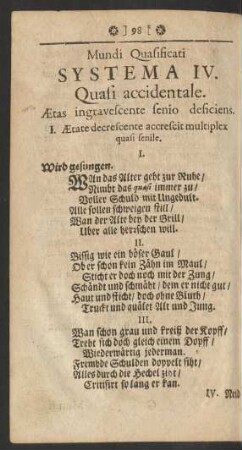 ] 98 [
Mundi Quasificati
SYSTEMA IV.
Quasi accidentale.
Ætas ingravescente senio deficiens.
I. Ætate decrescente accrescit multiplex
quasi senile.
I.
Wird gesungen.
WAn das Alter geht zur Ruhe/
Nimbt das quasi immer zu/
Voller Schuld mit Ungedult.
Alle sollen schweigen still/
Wan der Alte bey der Grill/
Uber alle herrschen will.
II.
Bissig wie ein böser Gaul/
Ob er schon kein Zähn im Maul/
Sticht er doch noch mit der Zung/
Schändt und schmäht/ dem er nicht gut/
Haut und sticht/ doch ohne Gluth/
Truckt und quälet Alt und Jung.
III.
Wan schon grau und kreiß der Kopff/
Treht sich doch gleich einem Dopff/
Wiederwärtig jederman.
Frembde Schulden doppelt siht/
Alles durch die Hechel ziht/
Critisirt so lang er kan.
IV. Neid